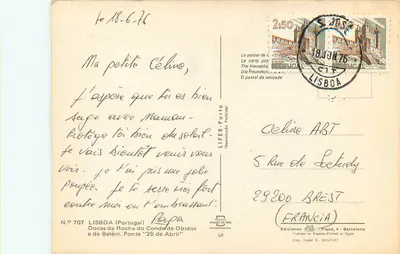 le 18-6-76
Ma petite Céline,
J'espère que tu es bien
sage avec Maman.
Protège toi bien du soleil.
Je vais bientôt venir vous
voir. Je t'ai pris une jolie
poupée. Je te serre très fort
contre moi en t'embrassant.
Papa
N.º 707 LISBOA (Portugal)
Docas da Rocha do Conde de Obidos
e de Belém. Ponte "25 de Abril"
LIFER-Porto
(Reservados Direitos)
L2
2$50
S. JOSÉ
18 JUN 76
LISBOA
La postal de
La carte pos
The friendship
Die freundsch
O postal da amizade
Céline ABT
5 Rue de
29200 BREST
(FRANCIA)
Ediciones
- Barcelona